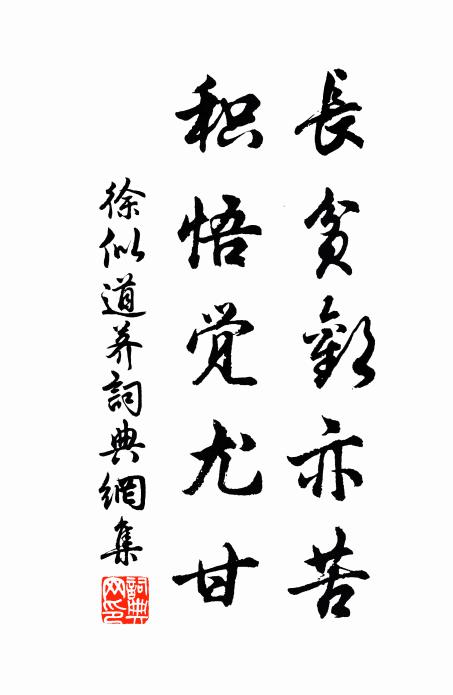 長貧歡亦苦
积悟觉尤甘
徐似道并詞典網集
詞典网印